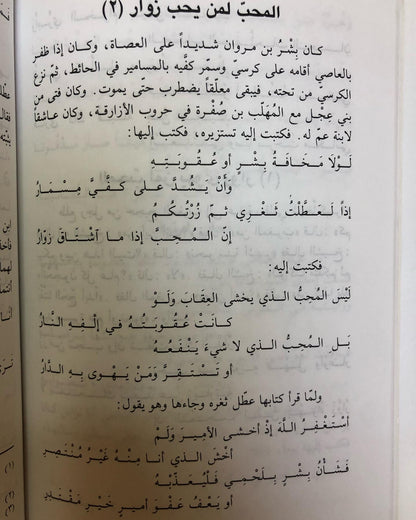 المحبّ لمن يحب زوار (٢)
كان بِشْرُ بن مروان شديداً على العصاة، وكان إذا ظفر
بالعاصي أقامه على كرسي وسمّر كفّيه بالمسامير في الحائط، ثم نزع
الكرسي من تحته، فيبقى معلّقاً يضطرب حتى يموت. وكان فتى من
بني عِجْل مع المهلّب بن صُفْرة في حروب الأزارقة، وكان عاشقاً
لابنة عم له. فكتبت إليه تستزيره، فكتب إليها:
لَوْلَا مَخَافَةُ بِشْرٍ أو عُقُوبَتِهِ
وَأنْ يَشُدَّ على كَفِّيَ مِسْمَارُ
إذاً لَعَطَّلْتُ ثَغْرِي ثمّ زُرْتُكُمُ
إنّ المُحِبَّ إذا ما اشْتَاقَ زوّارُ
فكتبت إليه:
لَيْسَ المُحِبُّ الذي يخشى العِقَابَ وَلَوْ
كانَتْ عُقُوبَتُهُ في إلفِهِ النَّارُ
بَلِ المُحِبُّ الذي لا شيءَ يَنْفَعُهُ
أو تَسْتَقِرَّ وَمَنْ يَهْوى بِهِ الدَّارُ
ولمّا قرأ كتابها عطّل ثغره وجاءها وهو يقول:
أَسْتَغْفِرُ اللَّهَ إذ أخشى الأميرَ وَلَمْ
أخْشَ الذي أنا مِنْهُ غَيْرُ مُنْتَصِرِ
فَشَأْنُ بِشْرٍ بِلَحْمِي فَلْيُعَذِّبْهُ
أو يَعْفُ عَفْوَ أميرٍ خَيْرِ مقْتَدِرِ